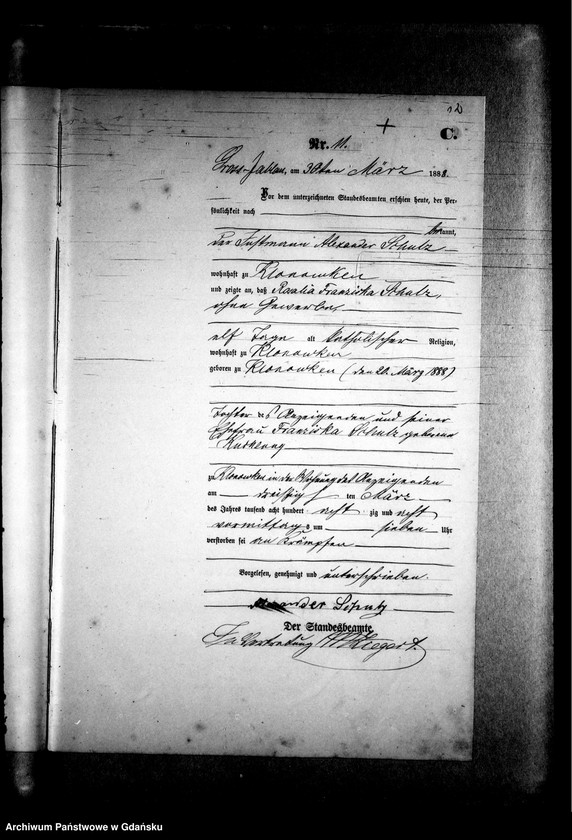 12
C.
Nr. 11.
Gross-Jablau, am 30ten März 1888.
Vor dem unterzeichneten Standesbeamten erschien heute, der Per-
sönlichkeit nach
bekannt,
der Instmann Alexander Schulz
wohnhaft zu Klonowken
und zeigte an, daß Rosalia Franziska Schulz,
ohne Gewerbe,
elf Tage alt katholischer Religion,
wohnhaft zu Klonowken
geboren zu Klonowken (den 20. März 1888)
Tochter des Anzeigenden und seiner
Ehefrau Franziska Schulz geborene
zu Klonowken in der Wohnung des Anzeigenden
am dreissigsten März
des Jahres tausend acht hundert acht zig und acht
vormittags um sieben Uhr
verstorben sei an Krämpfen
Vorgelesen, genehmigt und unterschrieben.
Alexander Schulz
Der Standesbeamte.
In Vertretung
Archiwum Państwowe w Gdańsku